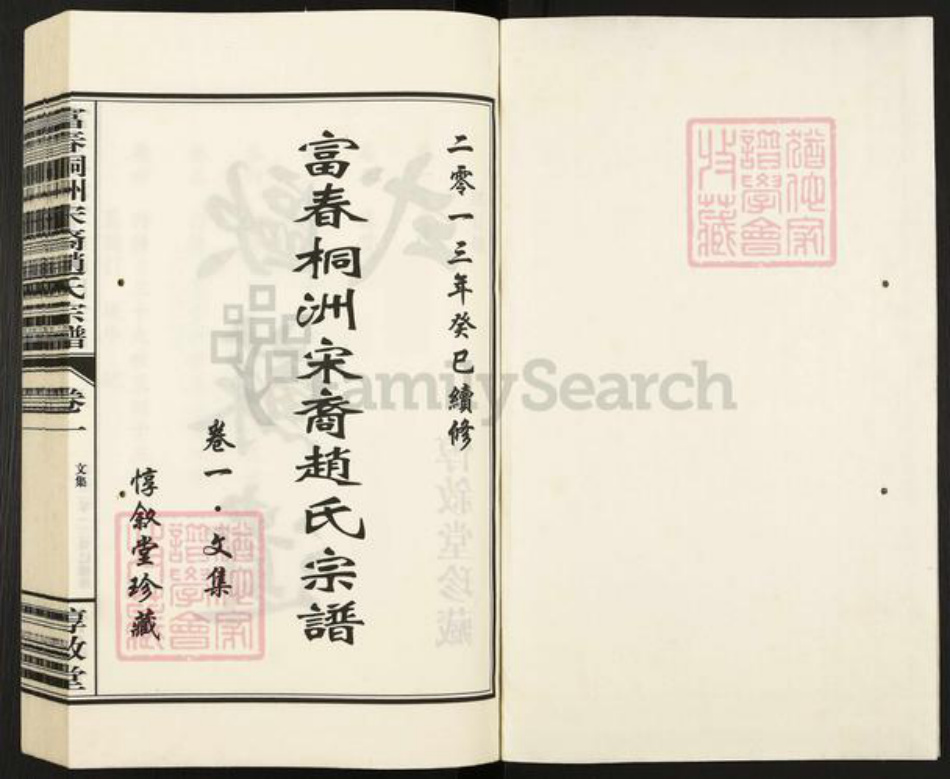 猶他家
譜學會
收藏
二零一三年癸巳續修
富春桐洲宋裔趙氏宗譜
卷一·文集
惇敘堂珍藏
猶他家
譜學會
收藏
富春桐洲宋裔趙氏宗譜
卷一
文集
惇敘堂
FamilySearch